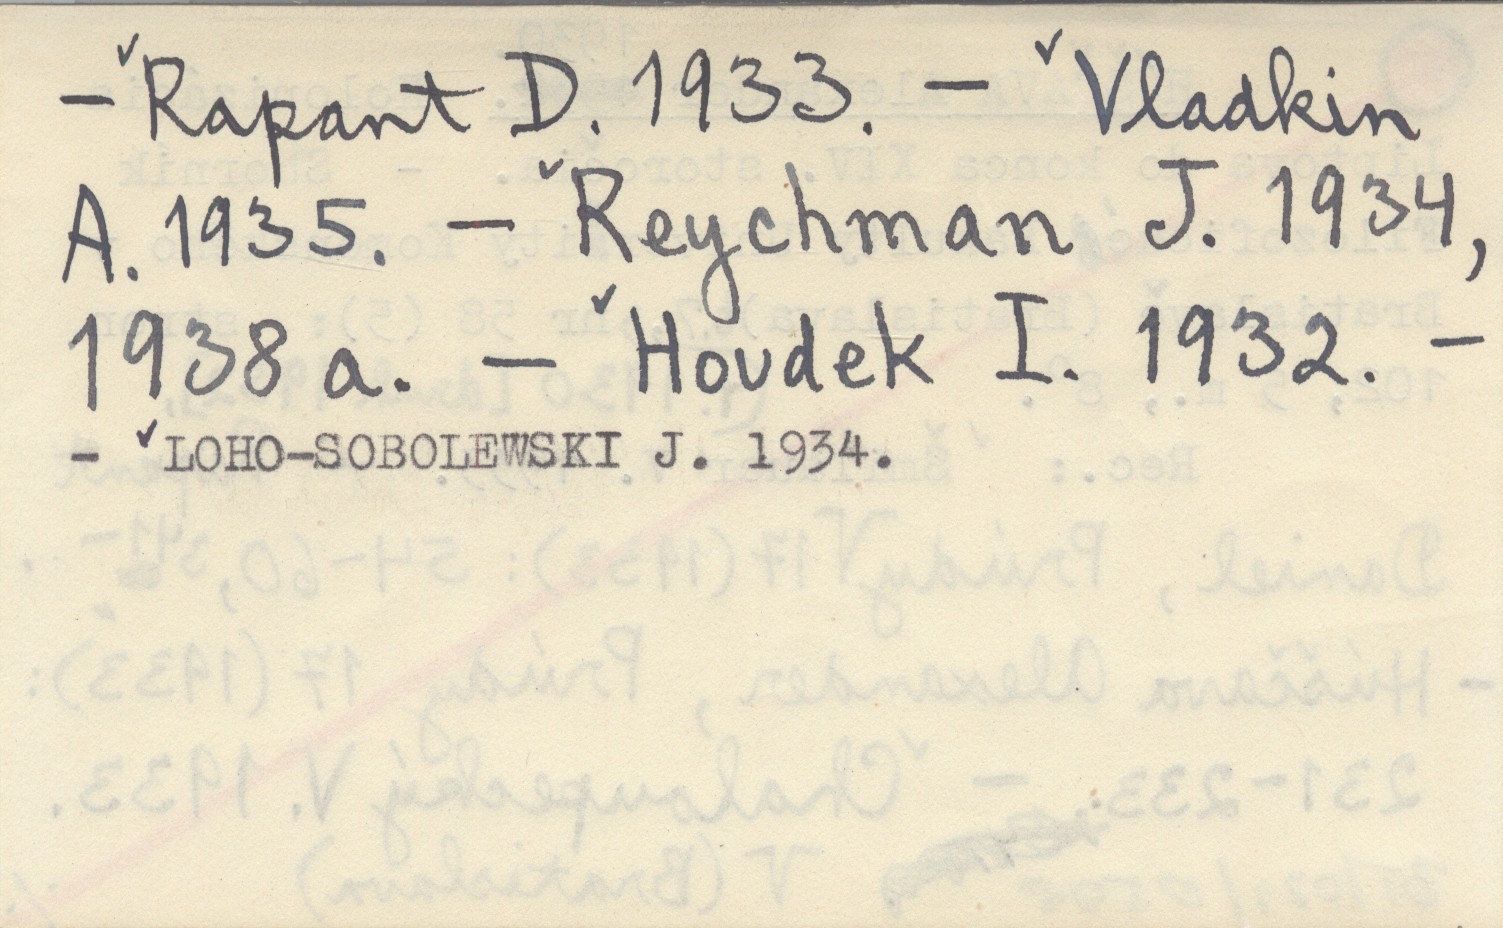 – ✓Rapant D. 1933. – ✓Vladkin
A. 1935. – ✓Reychman J. 1934,
1938 a. – ✓Houdek I. 1932. –
- ✓LOHO-SOBOLEWSKI J. 1934.